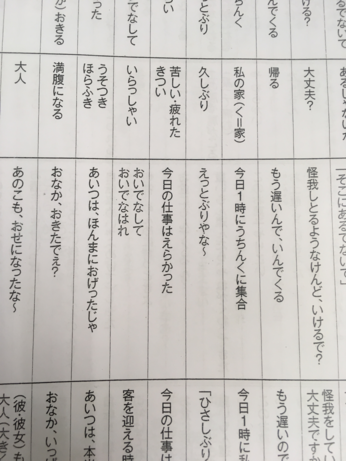 るでないで
あるじゃないか
「そこにあるでないで」
ける？
大丈夫？
怪我しとるようなけんど、いけるで？
怪我をしてい
大丈夫ですか
んでくる
帰る
もう遅いんで、いんでくる
もう遅いので
ちんく
私の家（く＝家）
今日１時にうちんくに集合
今日１時に私
とぶり
久しぶり
えっとぶりやな～
「ひさしぶり
い
苦しい・疲れた
きつい
今日の仕事はえらかった
今日の仕事は
でなして
いらっしゃい
おいでなして
おいでなはれ
客を迎える時
った
うそつき
ほらふき
あいつは、ほんまにおげったじゃ
あいつは、本
か）おきる
満腹になる
おなか、おきたでぇ？
おなか、いっ
大人
あのこも、おせになったな～
（彼・彼女）も
大人（大き